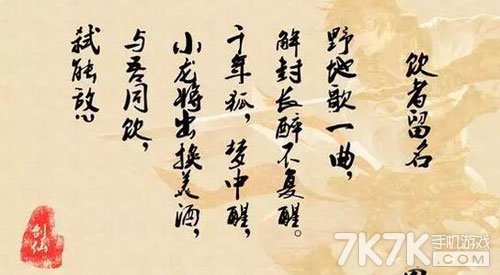 饮者留名
野地歌一曲，
解封长醉不复醒。
千年狐，梦中醒，
小龙将出换美酒，
与吾同饮，
弑能敌
剑仙
7K7K手机游戏